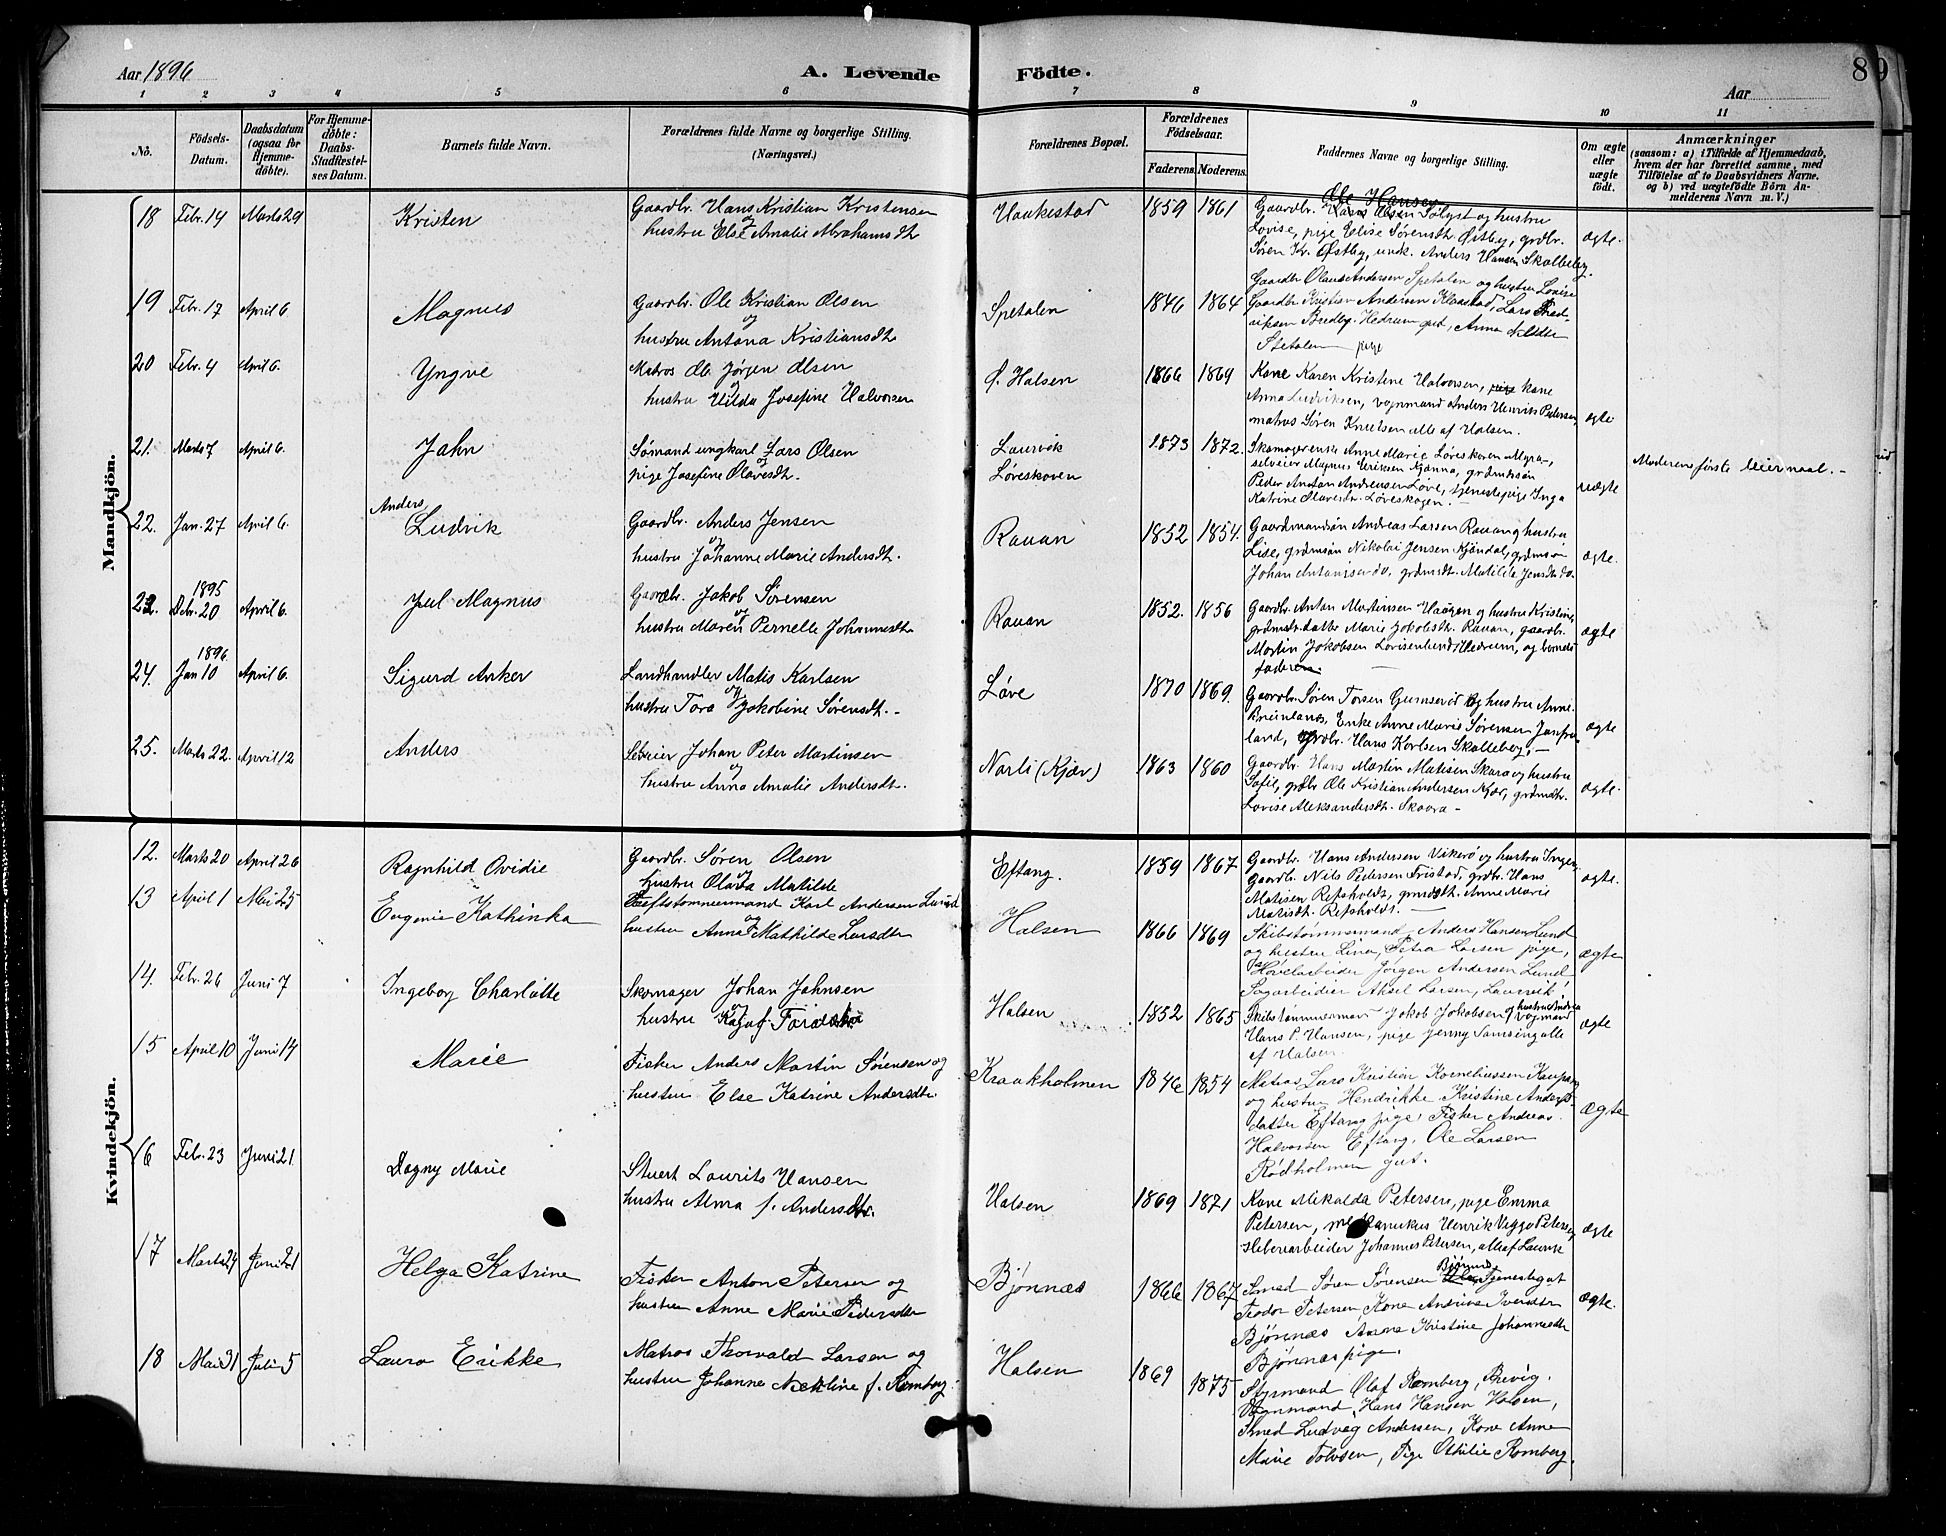 Aar 1896
A. Levende Födte.
Aar
89
1 2 3 4 5 6 7 8 9 10 11
No.
Födsels-Datum.
Daabsdatum (ogsaa for Hjemmedöbte).
For Hjemmedöbte: Daabs-Stadfæstelses Datum.
Barnets fulde Navn.
Forældrenes fulde Navne og borgerlige Stilling. (Næringsvei.)
Forældrenes Bopæl.
Forældrenes Födselsaar.
Faderens. Moderens.
Faddernes Navne og borgerlige Stilling.
Om ægte eller uægte födt.
Anmærkninger
(saasom: a) i Tilfælde af Hjemmedaab, hvem der har forrettet samme, med Tilföielse af to Daabsvidners Navne, og b) ved uægtefödte Börn Anmelderens Navn m. V.)
Mandkjön.
18 Febr. 14 Marts 29 Kristen
Gaardbr. Hans Kristian Kristensen og
hustru Else Amalie Abrahamsdt
Haakestad 1859 1861
Ole Hansen
Gaardbr. Hans Olsen Sølyst og hustru
Lovise, pige Elise Sørensdt. Østby, grdbr.
Søren Kr. Østby, unck. Anders Hansen Skalleberg.
ægte.
19 Febr. 17 April 6 Magnus
Gaardbr. Ole Kristian Olsen
og
hustru Antona Kristiansdt
Spetalen 1846 1864
Gaardbr Olaus Andersen Spetalen og hustru Lovise
Gaardbr. Kristian Andersen Klaastad, Lars Fred-
riksen Bredby. Hedrum gut, Anna
Spetalen pige
20 Febr. 4 April 6. Yngve
Matros Ole Jørgen Olsen
og
hustru Hilda Josefine Halvorsen
Ø. Halsen 1866 1869
Kone Karen Kristine Halvorsen, kone
Anna Ludviksen, vognmand Anders Henrik Petersen,
matros Søren Knutsen alle af Halsen.
ægte
21. Marts 7 April 6. Jahn
Sømand ungkarl Lars Olsen
og
pige Josefine Olavesdt.
Laurvik
Løveskoven
1873 1872.
Skomagerenke Anne Marie Løveskoven Myra-,
selveier Magnus Eriksen Kjønna, grdmdsøn
Peder Anton Andreasen Løve, tjenestepige Inga
Katrine Olavesdt. Løveskogen. -
uægte
Moderens første leiermaal. -
22. Jan. 27 April 6. Anders
Ludvik
Gaardbr. Anders Jensen
og
hustru Johanne Marie Andersdt.
Rauan 1852 1854.
Gaardmandsøn Andreas Larsen Rauan og hustru
Lise, grdmsøn Nikolai Jensen Kjøndal, grdmsøn
Johan Antonisen do, grdmdt. Matilde Jensdt do.
ægte.
1895
23. Debr. 20 April 6. Juel Magnus
Gaardbr. Jakob Sørensen
og
hustru Maren Pernelle Johannesdt
Rauan 1852. 1856
Gaardbr. Anton Martinsen Haagen og hustru Kristine,
grdmdt. datter Marie Jakobsdt. Rauan, gaardbr.
Martin Jakobsen Lovisenlund Hedrum, og barnets
faderen. —
ægte
1896
24. Jan 10 April 6. Sigurd Anker
Landhandler Matis Karlsen
og
hustru Tora Jakobine Sørensdt. -
Løve 1870 1869.
Gaardbr. Søren Torsen Gumserød og hustru Anne
Breinland, Enke Anne Marie Sørensen Jonfru-
land, grdbr. Hans Karlsen Skalleberg, -
ægte
25. Marts 22. April 12 Anders
Selveier Johan Peter Martinsen
og
hustru Anna Amalie Andersdt.
Narli (Kjær) 1863 1860
Gaardbr. Hans Martin Matisen Skara og hustru
Sofie, grdbr Ole Kristian Andersen Kjær, grdmdt.
Lovise Aleksandersdt. Skaara -
ægte.
Kvindekjön.
12. Marts 20 April 26 Ragnhild Ovidie
Gaardbr. Søren Olsen
og
hustru Olava Matilde
Eftang. 1859 1867
Gaardbr. Hans Andersen Vikerø og hustru Inger,
Gaardbr. Nils Pedersen Fristad, grdbr. Hans
Matisen Refsholdt, grmdsdt. Anne Marie
Matisdt. Refsholdt. —
ægte.
13 April 1 Mai 25 Eugenie Kathinka
Skibstømmermand Karl Andersen Lund
og
hustru Anna Mathilde Larsdtr
Halsen 1866 1869
Skibstømmermand Anders Hansen Lund
og hustru Lina, Petra Larsen pige,
Høvelarbeider Jørgen Andersen Lund
Sagarbeider Aksel Larsen, Laurvik
ægte
14. Febr. 26 Juni 7 Ingeborg Charlotte
Skomager Johan Jahnsen
og
hustru Kaja f.
Halsen 1852 1865
Skibstømmermand Jakob Jakobsen og hustru vognmand
Hans P. Hansen, pige Jenny Samsing alle
af Halsen.
ægte
15 April 10 Juni 14 Marie
Fisker Anders Martin Sørensen og
hustru Else Katrine Andersdtr.
Kraakholmen 1846 1854
Matros Lars Kristian Korneliussen Kaupang
og hustru Hendrikke Kristine Anders-
datter Eftang pige, Fisker Andreas
Halvorsen Eftang, Ole Larsen
Rødholmen gut.
ægte
16 Febr. 23 Juni 21. Dagny Marie
Stuert Laurits Hansen
hustru Alma f. Andersdtr.
Halsen 1869 1871
Kone Mikalda Petersen, pige Emma
Petersen, Henrik Viggo Petersen,
Johannes Petersen, alle af Laurvik
ægte
17 Marts 24 Juni 21 Helga Katrine
Fisker Anton Petersen og
hustru Anne Marie Pedersdtr
Bjønnæs 1866 1867
Smed Søren Sørensen Bjønnæs, Tjenestegut
Teodor Petersen, Kone Andrine Iversdtr
Bjønnæs Anna Kristine Johannesdtr
Bjønnæs pige.
ægte.
18 Mai 31 Juli 5 Laura Erikke
Matros Thorvald Larsen og
hustru Johanne Nekline f. Romberg.
Halsen 1869 1875
Styrmand Olaf Romberg, Brevig.
Vognmand, Hans Hansen Halsen,
Smed Ludvig Andersen, Kone Anne
Marie Tolvsen, Pige Othilie Romberg.